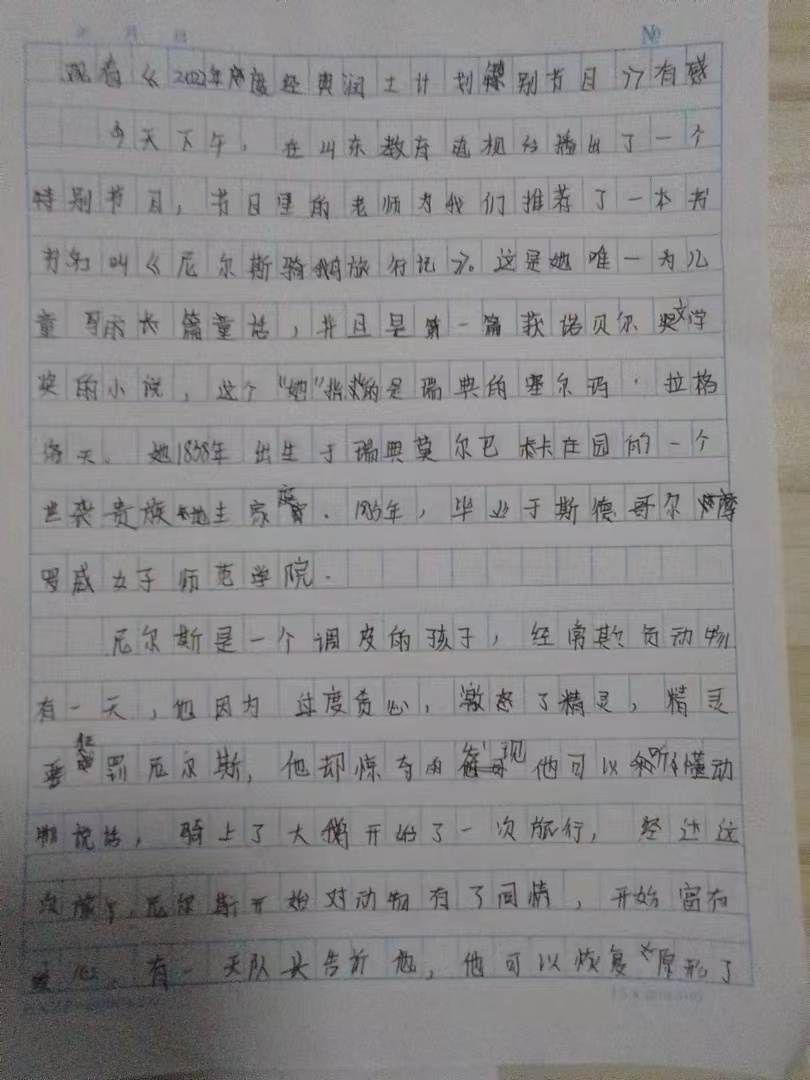 年 月 日 No
观看《2022年度经典润土计划特别节目》有感
今天下午，在山东教育电视台播出了一个
特别节目，节目里的老师为我们推荐了一本书
书名叫《尼尔斯骑鹅旅行记》。这是她唯一为儿
童写的长篇童话，并且是第一篇获诺贝尔文学
奖的小说，这个"她"指的是瑞典的塞尔玛·拉格
洛夫、她1858年出生于瑞典莫尔巴卡庄园的一个
贵族地主家庭．年，毕业于斯德哥尔摩
罗威女子师范学院．
尼尔斯是一个调皮的孩子，经常欺负动物
有一天，他因为过度贪心，激怒了精灵，精灵
要惩罚尼尔斯，他却惊奇的发现他可以听懂动
物说话，骑上了大鹅开始了一次旅行，经过这
次旅行，尼尔斯开始对动物有了同情，开始富有
爱心，有一天队长告诉他，他可以恢复原形了